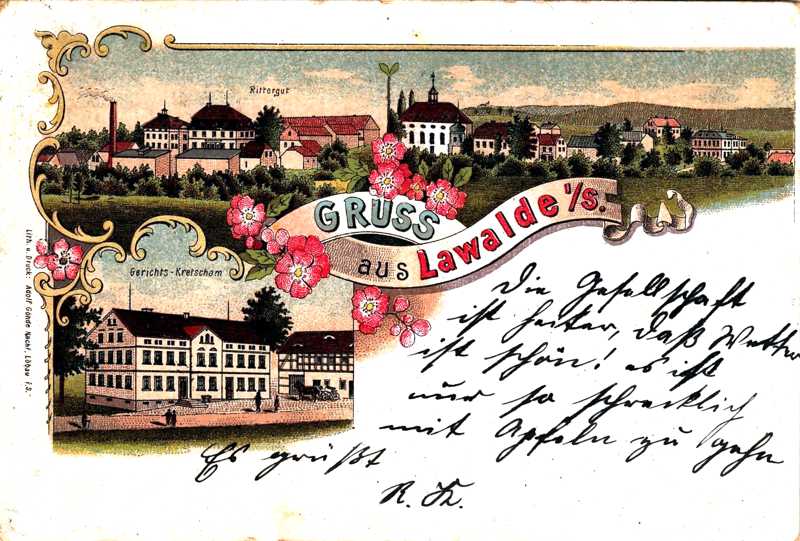 Rittergut
GRUSS
aus Lawalde i/s.
Gerichts-Kretscham
Lith. u. Druck: Adolf Gande Nachf. Löbau i. S.
Die Gesellschaft
ist heiter, daß Wetter
ist schön! es ist
nur so schrecklich
mit Apfeln zu gehn
Es grüßt
R.